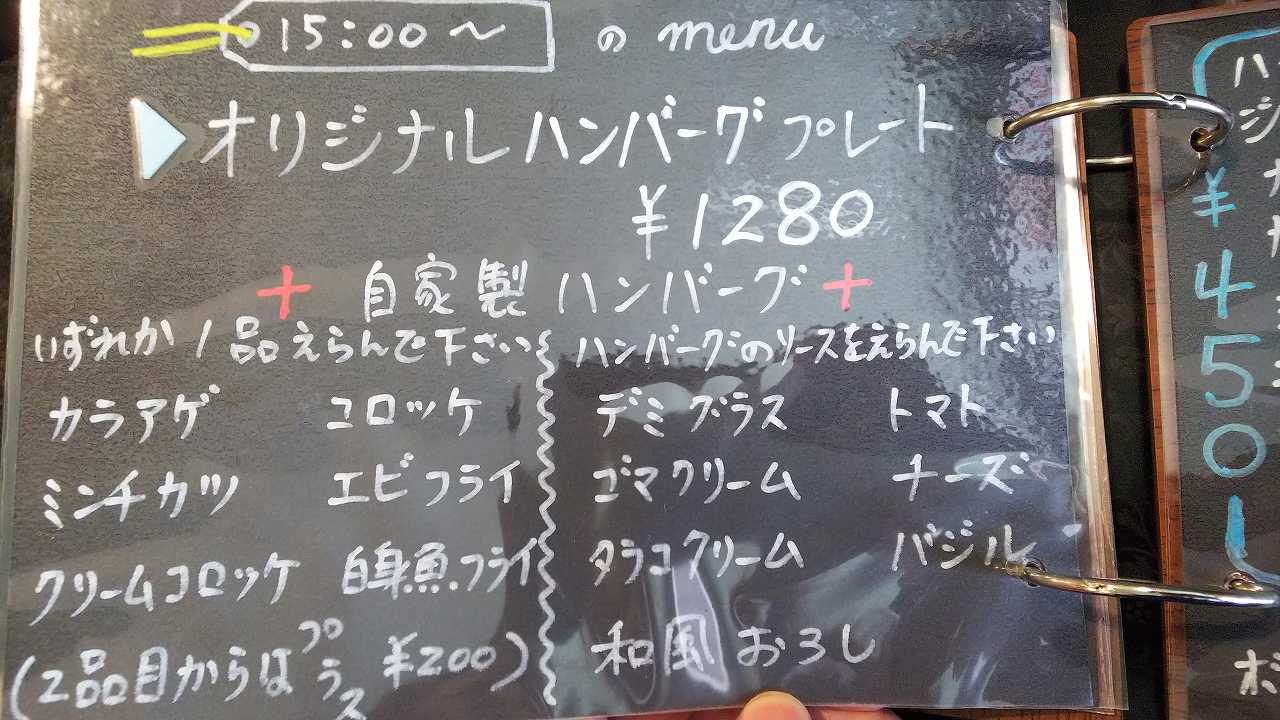 15:00〜 の menu
オリジナルハンバーグプレート
¥1280
+ 自家製ハンバーグ +
いずれか1品えらんで下さい
カラアゲ コロッケ
ミンチカツ エビフライ
クリームコロッケ 白身魚フライ
(2品目からはプラス ¥200)
ハンバーグのソースをえらんで下さい
デミグラス トマト
ゴマクリーム チーズ
タラコクリーム バジル
和風おろし
¥450